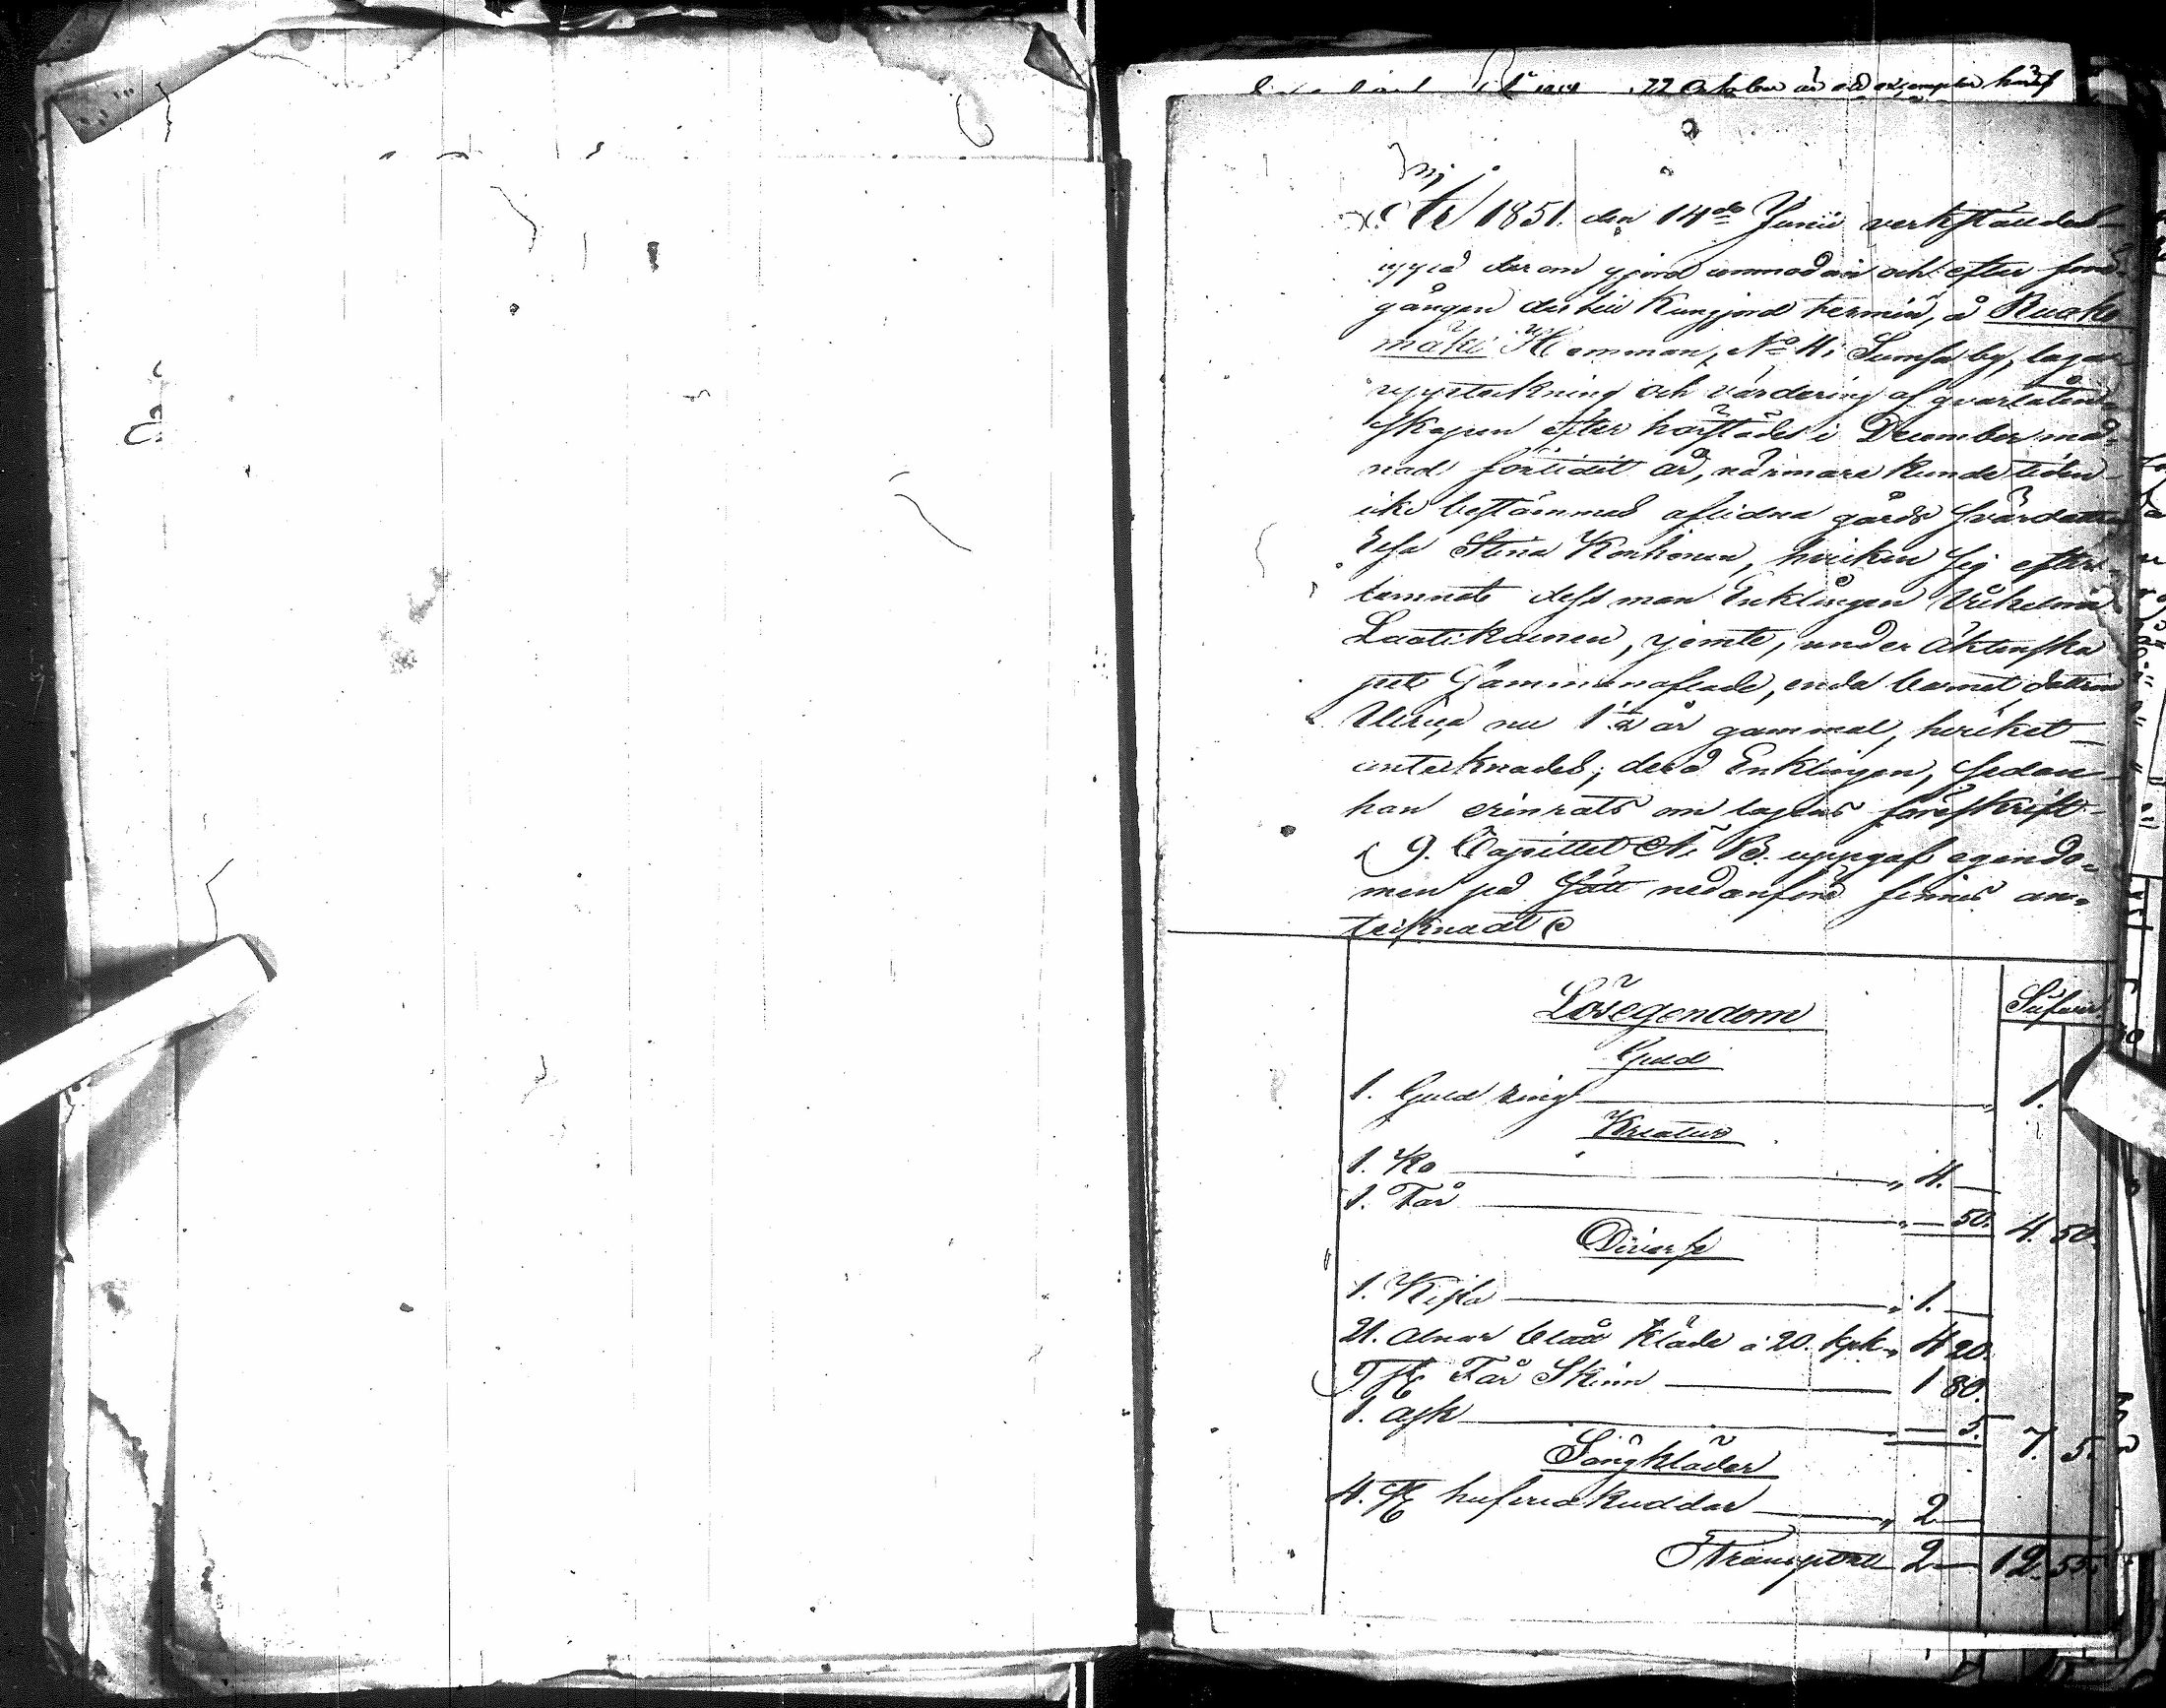 22 October
År 1851. den 14de Junii verkställdes
uppå derom gjord anmodan och efter fore-
gången dertill kungjord termin, å Ruoko
mäki Hemman, No 4 i Sumsa by, laga
uppteckning och värdering af qvarlåten-
skapen efter härstädes i December må-
nad förlidit år, närmare kunde tiden
icke bestämmas aflidna gårds svärdottren
Elsa Stina Korhonen, hvilken sig efter-
lemnat dess man Enklingen Vilhelm
Laatikainen, jemte, under äktenska
pet sammanaflade, enda barnet, dottren
Ulrica nu 1 1/2 år gammal, hvilket
antecknades; derå Enklingen, sedan
han erinrats om lagens föreskrift
i 9. Capittlet Ä. B. uppgaf egendo-
men på sätt nedanföre finnes an-
tecknadt
Lösegendom
Silfver
Guld
1. Guld ring 1.
Kreatur
1. Ko " 4. —
1. Får " — 50. 4. 50.
Diverse
1. Kista " 1. —
21. alnar blått Kläde à 20. kpk " 4 20.
9 st Får Skinn 1 80.
1. ask — 5. 7. 5.
Sängkläder
4. st hufvudkuddar " 2 —
Transport 2 — 12. 55.